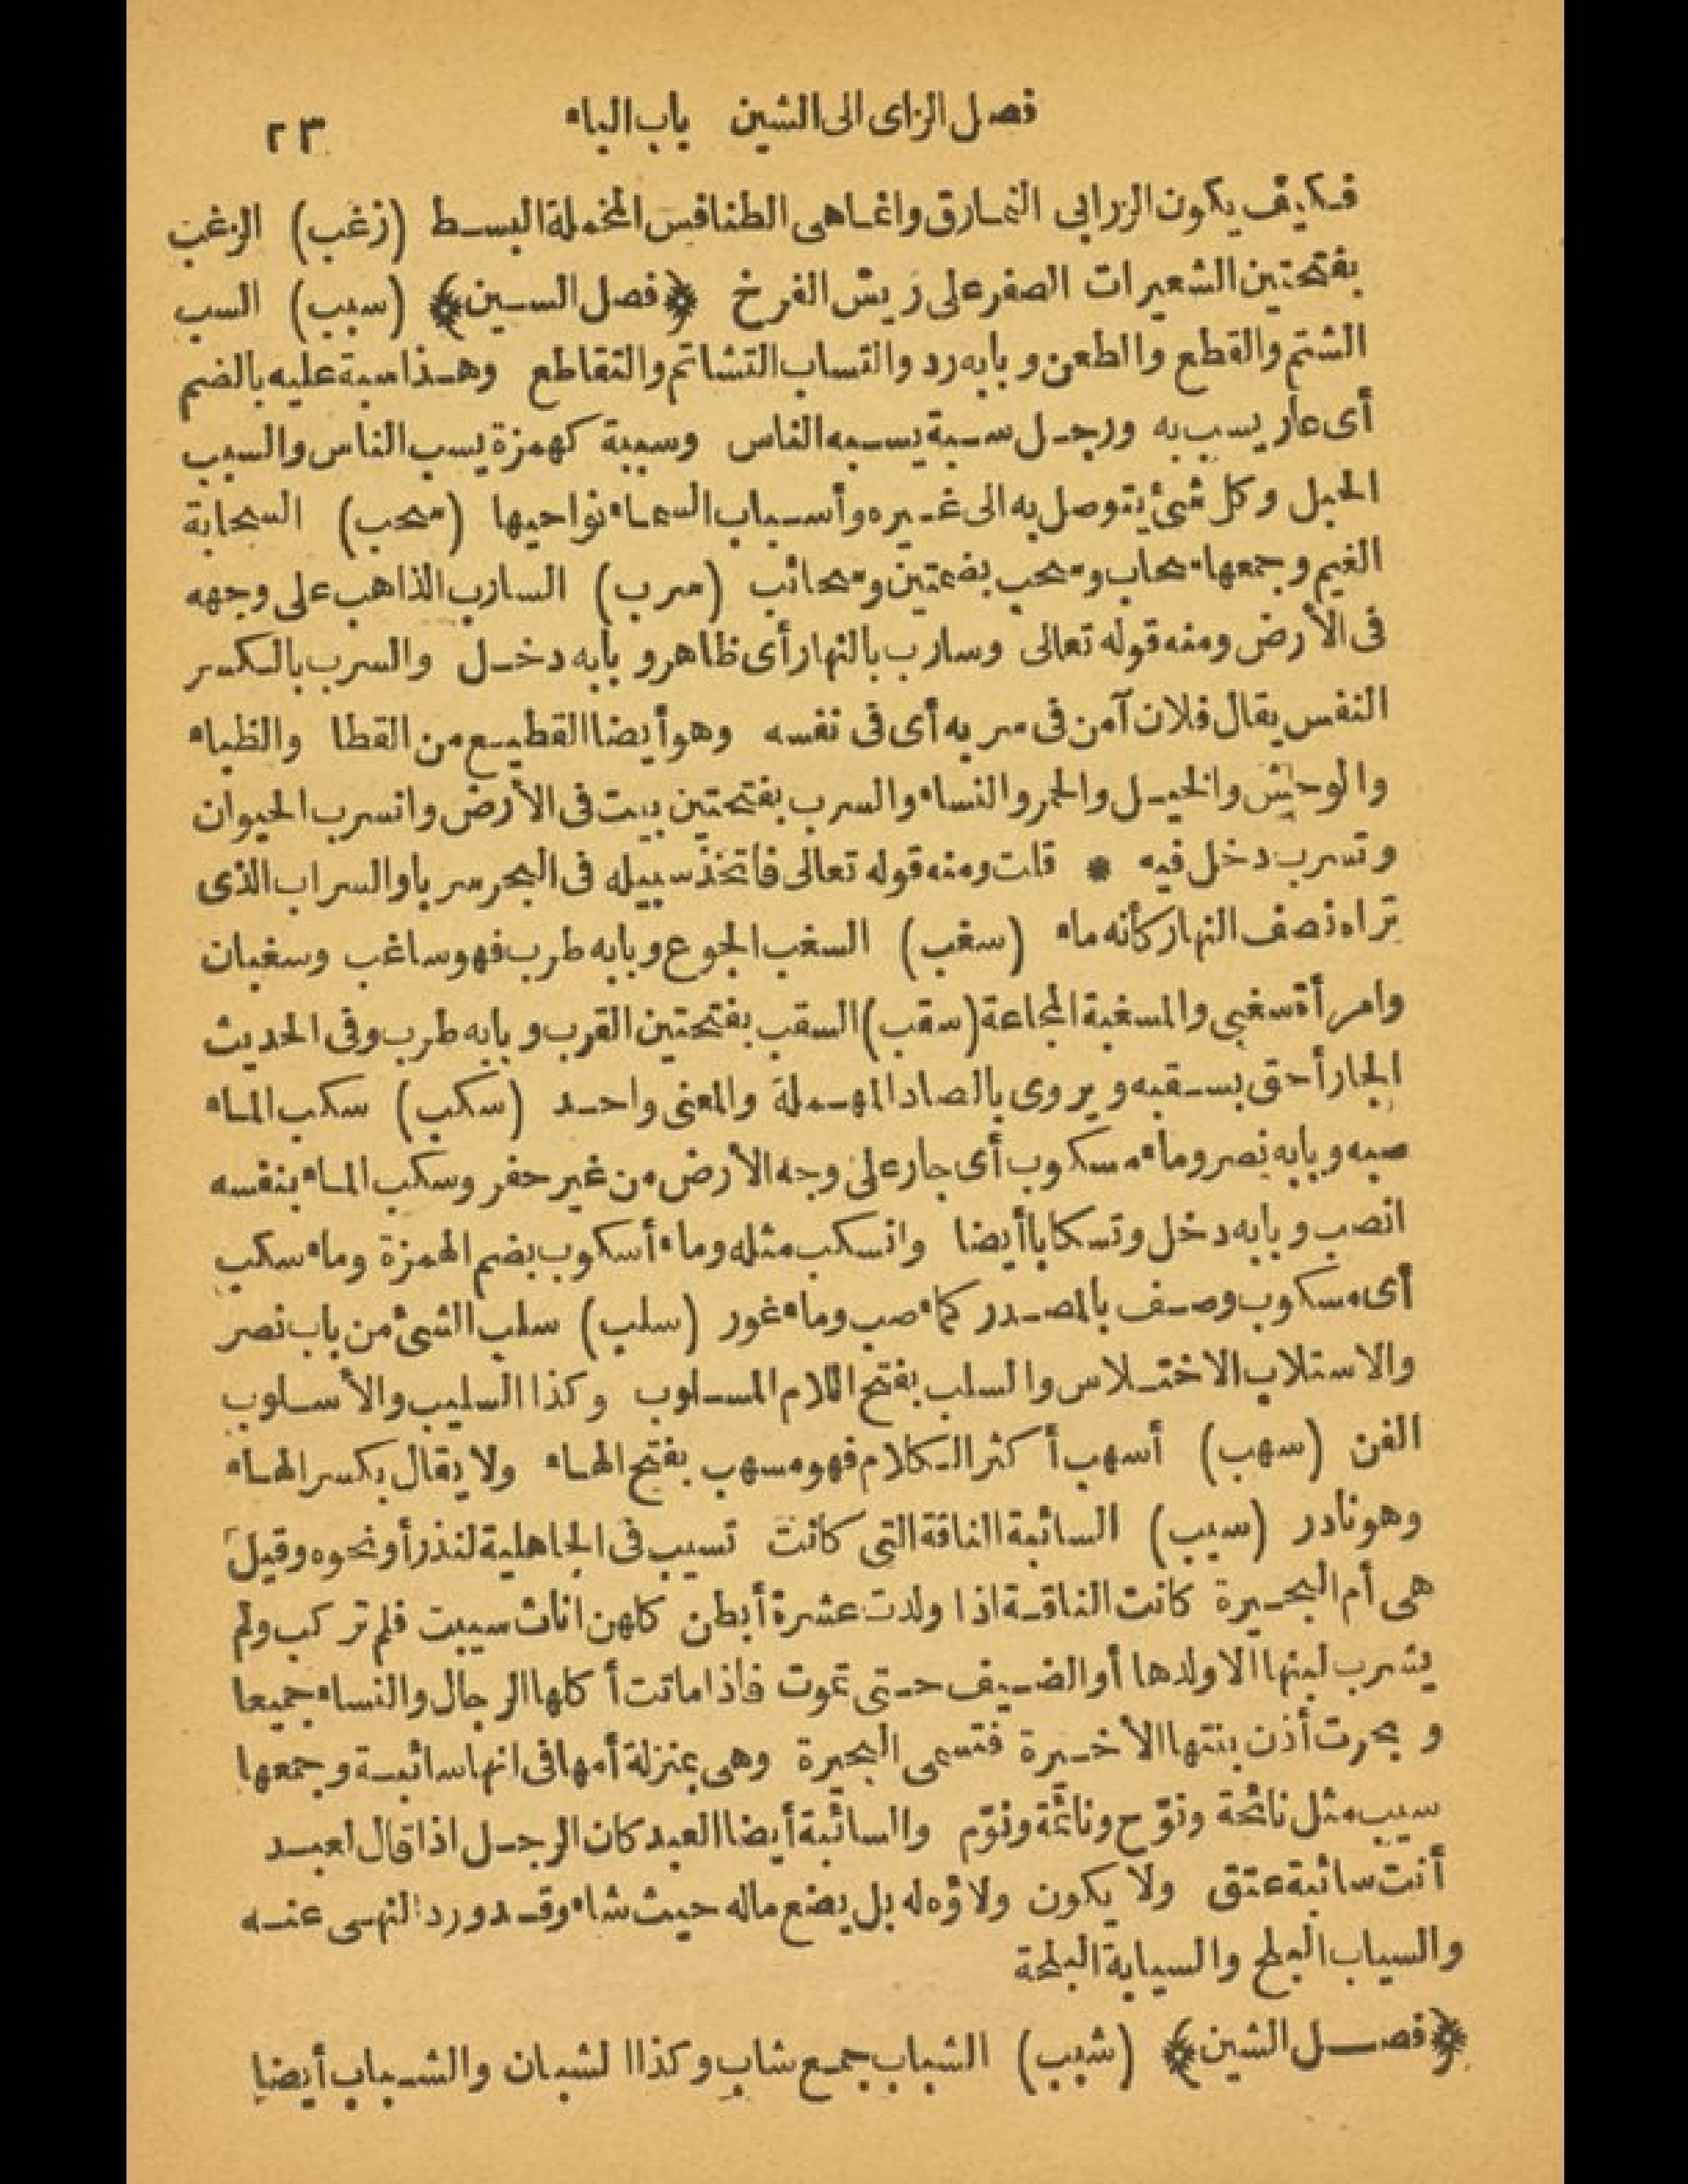 فصل الزاى الى الشين باب الباء
٢٣
فكيف يكون الزرابى النمارق وانماهى الطنافس المخملة البسط (زغب) الزغب
بفتحتين الشعيرات الصفر على ريش الفرخ ﴿فصل السين﴾ (سبب) السب
الشتم والقطع والطعن وبابه رد والتساب التشاتم والتقاطع وهذا سبة عليه بالضم
أى عار يسب به ورجل سبة يسبه الناس وسببة كهمزة يسب الناس والسبب
الحبل وكل شئ يتوصل به الى غيره وأسباب السماء نواحيها (سحب) السحابة
الغيم وجمعها سحاب وسحب بضمتين وسحائب (سرب) السارب الذاهب على وجهه
فى الأرض ومنه قوله تعالى وسارب بالنهار أى ظاهر وبابه دخل والسرب بالكسر
النفس يقال فلان آمن فى سربه أى فى نفسه وهو أيضا القطيع من القطا والظباء
والوحش والخيل والحمر والنساء والسرب بفتحتين بيت فى الأرض وانسرب الحيوان
وتسرب دخل فيه * قلت ومنه قوله تعالى فاتخذ سبيله فى البحر سربا والسراب الذى
تراه نصف النهار كأنه ماء (سغب) السغب الجوع وبابه طرب فهو ساغب وسغبان
وامرأة سغبى والمسغبة المجاعة (سقب) السقب بفتحتين القرب وبابه طرب وفى الحديث
الجار أحق بسقبه ويروى بالصاد المهملة والمعنى واحد (سكب) سكب الماء
صبه وبابه نصر وماء مسكوب أى جار على وجه الأرض من غير حفر وسكب الماء بنفسه
انصب وبابه دخل وتسكابا أيضا وانسكب مثله وماء أسكوب بضم الهمزة وماء سكب
أى مسكوب وصف بالمصدر كماء صب وماء غور (سلب) سلب الشئ من باب نصر
والاستلاب الاختلاس والسلب بفتح اللام المسلوب وكذا السليب والأسلوب
الفن (سهب) أسهب أكثر الكلام فهو مسهب بفتح الهاء ولا يقال بكسر الهاء
وهو نادر (سيب) السائبة الناقة التى كانت تسيب فى الجاهلية لنذر أو نحوه وقيل
هى أم البحيرة كانت الناقة اذا ولدت عشرة أبطن كلهن اناث سيبت فلم تركب ولم
يشرب لبنها الا ولدها أو الضيف حتى تموت فاذا ماتت أكلها الرجال والنساء جميعا
وبحرت أذن بنتها الأخيرة فتسمى البحيرة وهى بمنزلة أمها فى انها سائبة وجمعها
سيب مثل نائحة ونوّح ونائمة ونوّم والسائبة أيضا العبد كان الرجل اذا قال لعبد
أنت سائبة عتق ولا يكون ولاؤه له بل يضع ماله حيث شاء وقد ورد النهى عنه
والسياب البلح والسيابة البلحة
﴿فصل الشين﴾ (شبب) الشباب جمع شاب وكذا الشبان والشباب أيضا